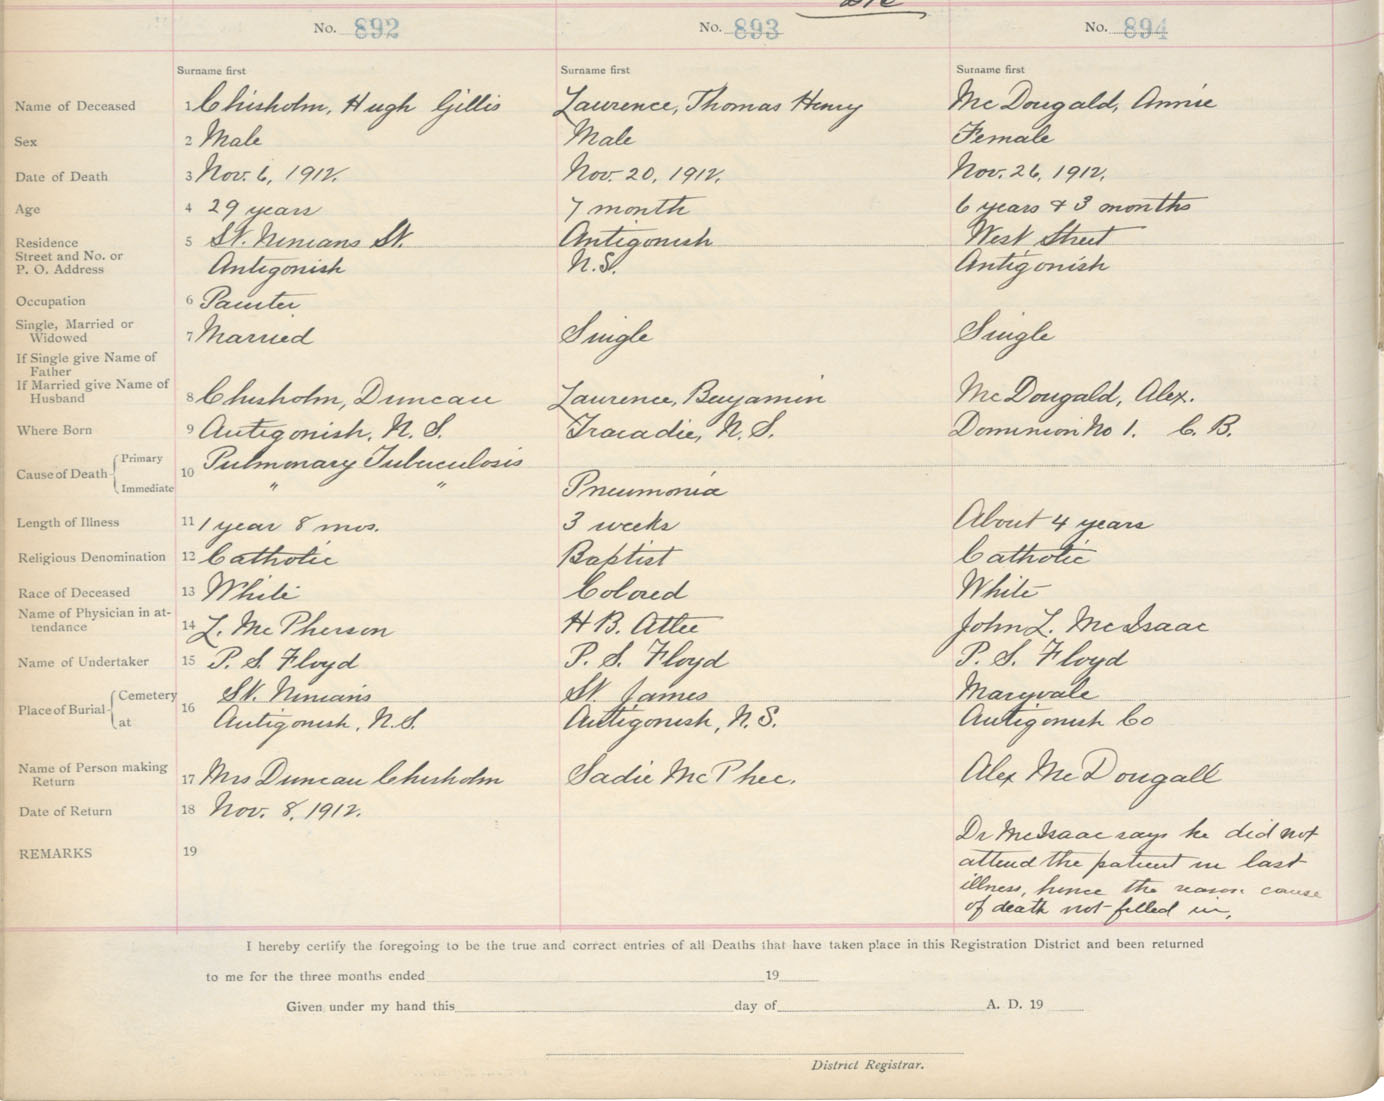 No. 892 No. 893 No. 894
Surname first Surname first Surname first
Name of Deceased 1 Chisholm, Hugh Gillis Laurence, Thomas Henry McDougald, Annie
Sex 2 Male Male Female
Date of Death 3 Nov. 6, 1912. Nov. 20, 1912. Nov. 26, 1912.
Age 4 29 years 7 month 6 years & 3 months
Residence 5 St. Ninians St. Antigonish West Street
Street and No. or
P. O. Address Antigonish N.S. Antigonish
Occupation 6 Painter
Single, Married or
Widowed 7 Married Single Single
If Single give Name of
Father
If Married give Name of
Husband 8 Chisholm, Duncan Laurence, Benjamin McDougald, Alex.
Where Born 9 Antigonish, N. S. Tracadie, N. S. Dominion No 1. C. B.
Cause of Death Primary 10 Pulmonary Tuberculosis
Immediate " " Pneumonia
Length of Illness 11 1 year 8 mos. 3 weeks About 4 years
Religious Denomination 12 Catholic Baptist Catholic
Race of Deceased 13 White Colored White
Name of Physician in at-
tendance 14 L. McPherson H B. Attee John L. McIsaac
Name of Undertaker 15 P. S. Floyd P. S. Floyd P. S. Floyd
Place of Burial Cemetery 16 St. Ninian's St. James Maryvale
at Antigonish, N.S. Antigonish, N.S. Antigonish Co
Name of Person making
Return 17 Mrs Duncan Chisholm Sadie McPhee. Alex McDougall
Date of Return 18 Nov. 8, 1912.
REMARKS 19 Dr McIsaac says he did not
attend the patient in last
illness, hence the reason cause
of death not filled in.
I hereby certify the foregoing to be the true and correct entries of all Deaths that have taken place in this Registration District and been returned
to me for the three months ended 19
Given under my hand this day of A. D. 19
District Registrar.